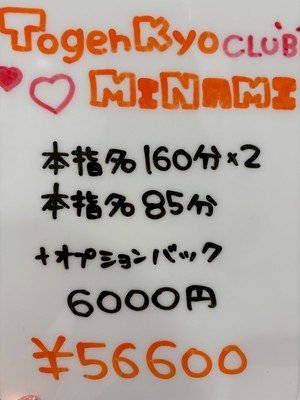 TogenKyo CLUB
MINAMI
本指名160分×2
本指名85分
+オプションバック
6000円
¥56600